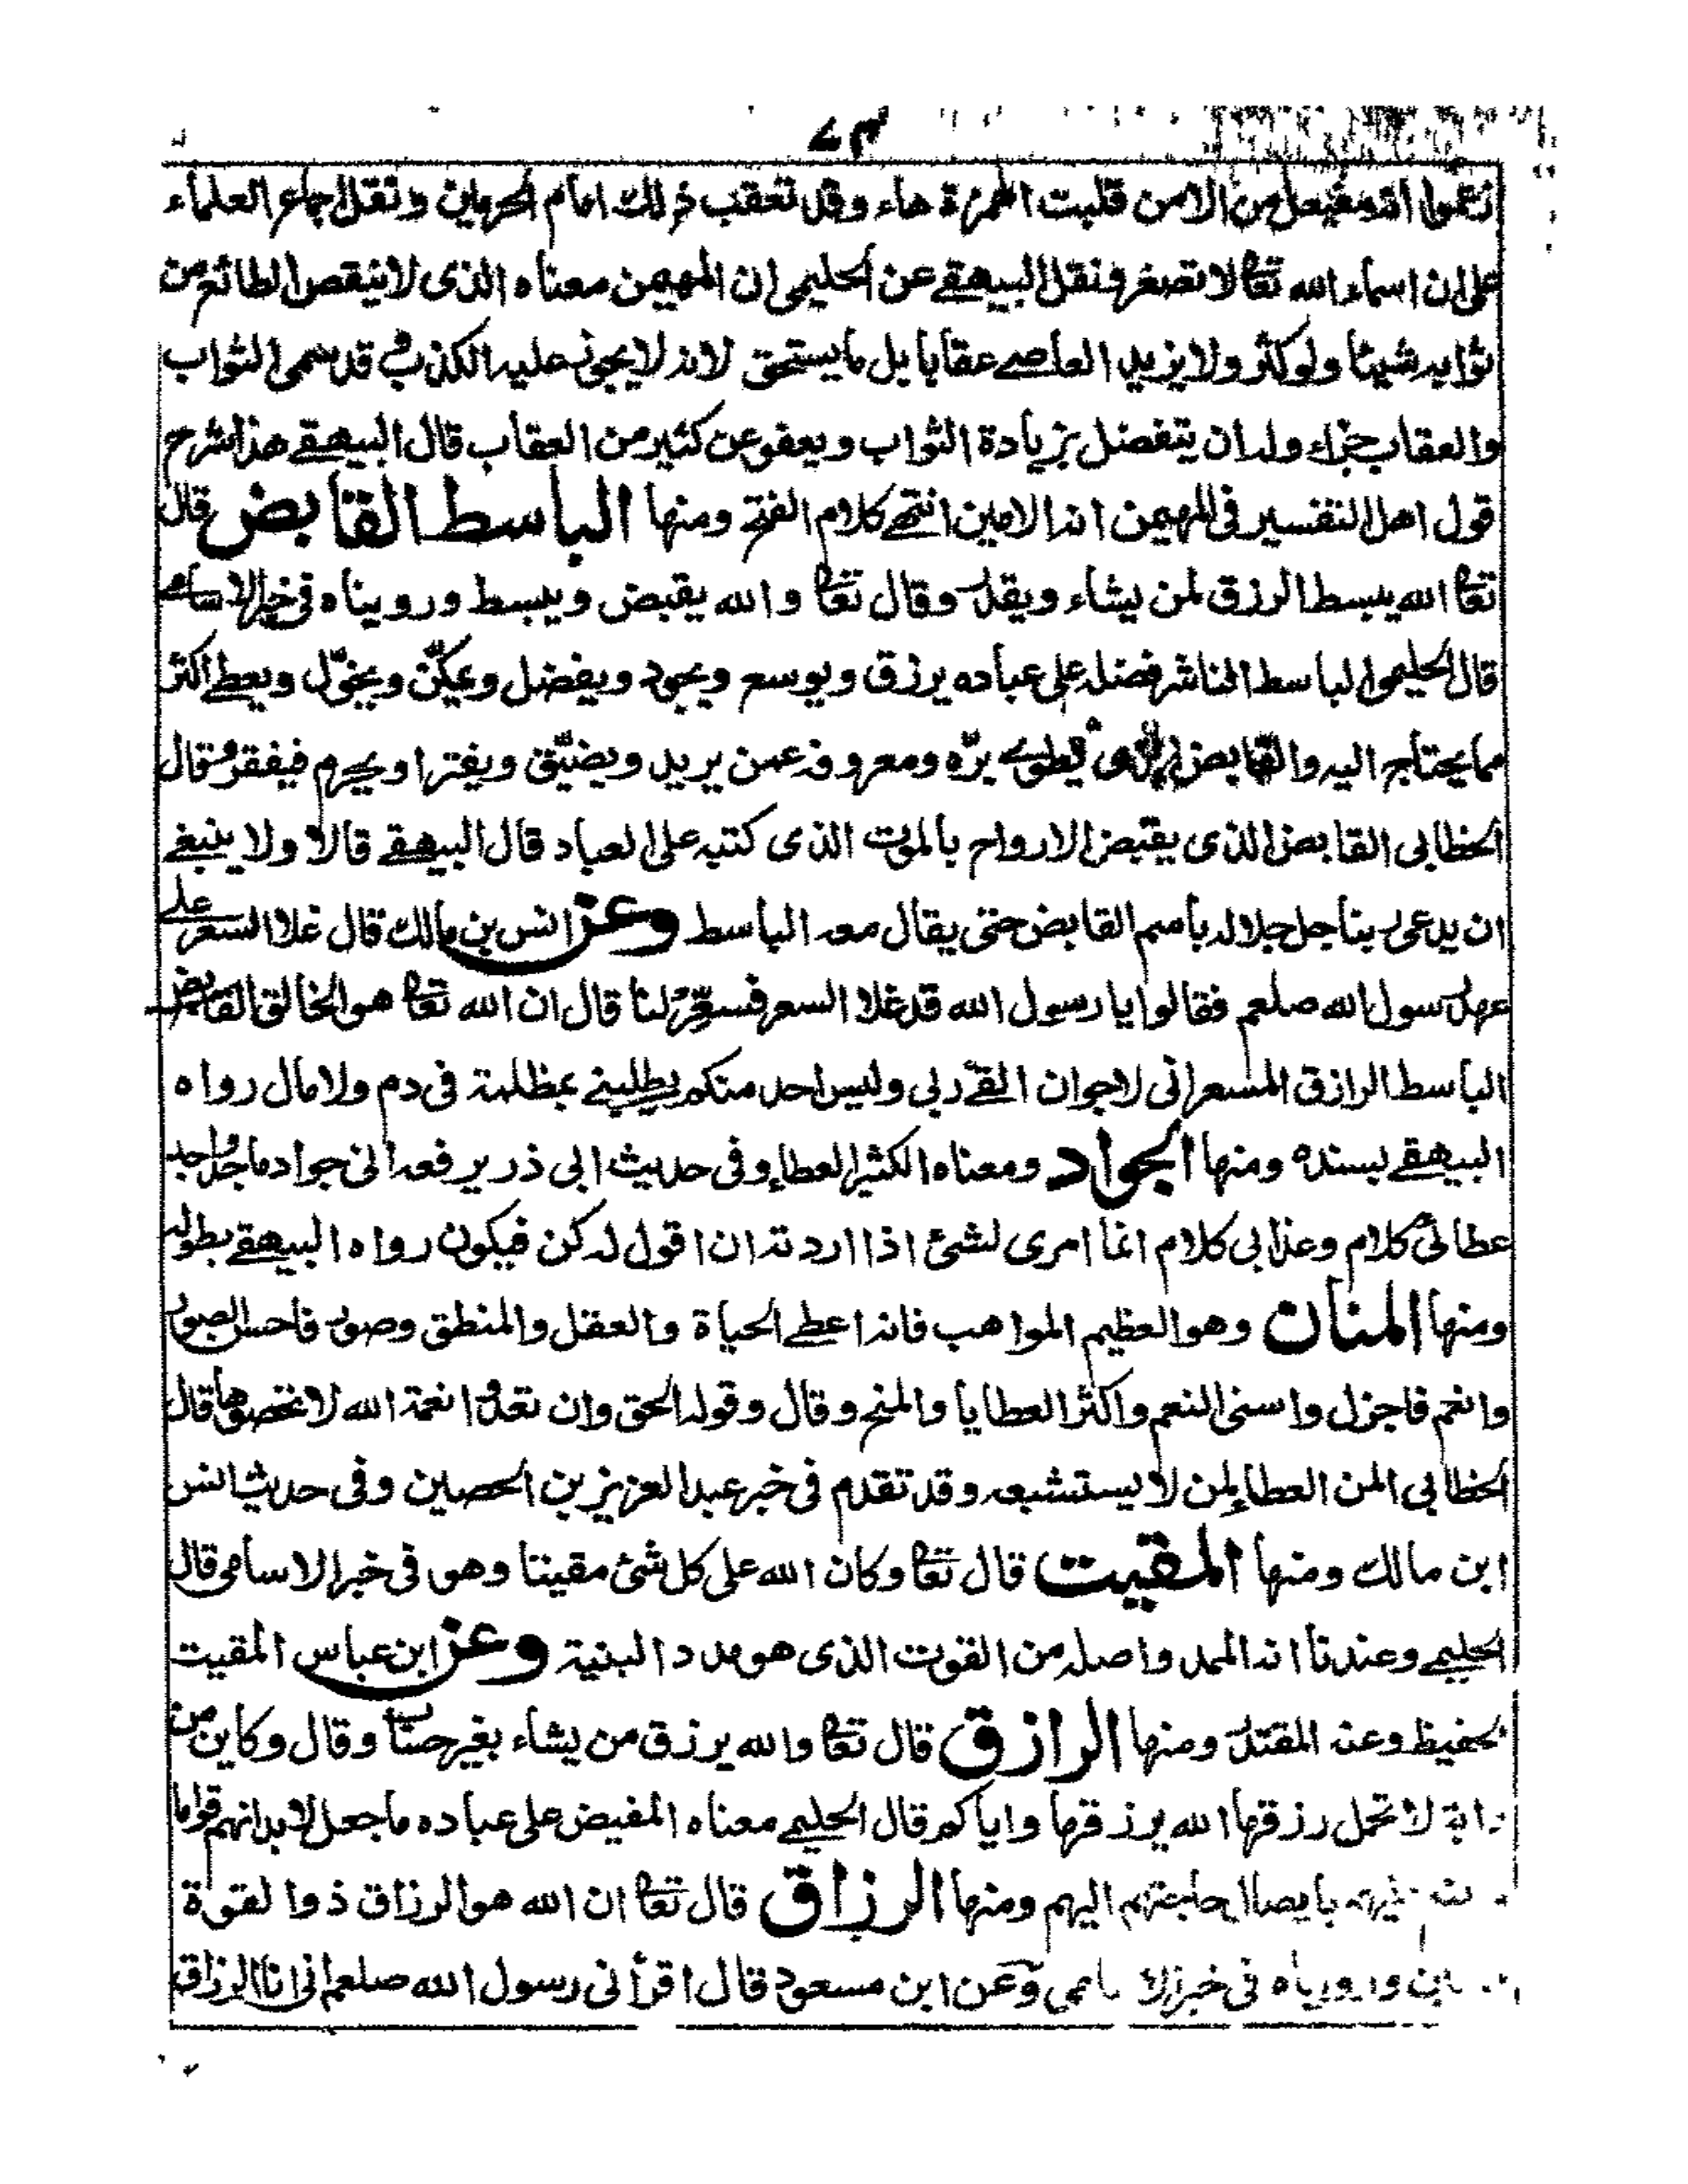 ٧٣
زعموا انه مفيعل من الامن قلبت الهمزة هاء وقد تعقب ذلك امام الحرمين ونقل اجماع العلماء
على ان اسماء الله تعالى لا تصغر ونقل البيهقے عن الحليمي ان المهيمن معناه الذى لا ينقص الطائع من
ثوابه شيئا ولو كثر ولا يزيد العاصے عقابا بل ما يستحق لانه لا يجوز عليه الكذب وقد سمى الثواب
والعقاب جزاء وله ان يتفضل بزيادة الثواب ويعفو عن كثير من العقاب قال البيهقے هذا شرح
قول اهل التفسير فى المهيمن انه الامين انتهے كلام الفتح ومنها الباسط القابض قال
تعالى الله يبسط الرزق لمن يشاء ويقدر وقال تعالى والله يقبض ويبسط ورويناه فى خبر الاسامے
قال الحليمى الباسط الناشر فضله على عباده يرزق ويوسع ويجود ويفضل ويمكّن ويخوّل ويعطے اكثر
مما يحتاج اليه والقابض الذى يطوى برّه ومعروفه عمن يريد ويضيّق ويقتر او يحرم فيفقر وقال
الخطابى القابض الذى يقبض الارواح بالموت الذى كتبه على العباد قال البيهقے قالا ولا ينبغے
ان يدعى ربنا جل جلاله باسم القابض حتى يقال معه الباسط وعن انس بن مالك قال غلا السعر على
عهد رسول الله صلعم فقالوا يا رسول الله قد غلا السعر فسعّر لنا قال ان الله تعالى هو الخالق القابض
الباسط الرازق المسعر انى لارجو ان القے ربى وليس احد منكم يطلبنے بمظلمة فى دم ولا مال رواه
البيهقے بسنده ومنها الجواد ومعناه الكثير العطاء وفى حديث ابى ذر يرفعه انى جواد ماجد واجد
عطائى كلام وعذابى كلام انما امرى لشئ اذا اردته ان اقول له كن فيكون رواه البيهقے بطوله
ومنها المنان وهو العظيم المواهب فانه اعطے الحياة والعقل والمنطق وصور فاحسن الصور
وانعم فاجزل واسنى النعم واكثر العطايا والمنح وقال وقوله الحق وان تعدوا نعمة الله لا تحصوها قال
الخطابى المن العطاء لمن لا يستشيبه وقد تقدم فى خبر عبد العزيز بن الحصين وفى حديث انس
ابن مالك ومنها المقيت قال تعالى وكان الله على كل شئ مقيتا وهو فى خبر الاسامى قال
الحليمے وعندنا انه الممد واصله من القوت الذى هو مدد البنية وعن ابن عباس المقيت
الحفيظ وعنه المقتدر ومنها الرازق قال تعالى والله يرزق من يشاء بغير حساب وقال وكاين من
دابة لا تحمل رزقها الله يرزقها واياكم قال الحليمے معناه المفيض على عباده ما جعل لابدانهم قواما
عليهم بايصال حاجتهم اليهم ومنها الرزاق قال تعالى ان الله هو الرزاق ذو القوة
المتين ورويناه فى خبر الاسامى وعن ابن مسعود قال اقرأنى رسول الله صلعم انى انا الرزاق